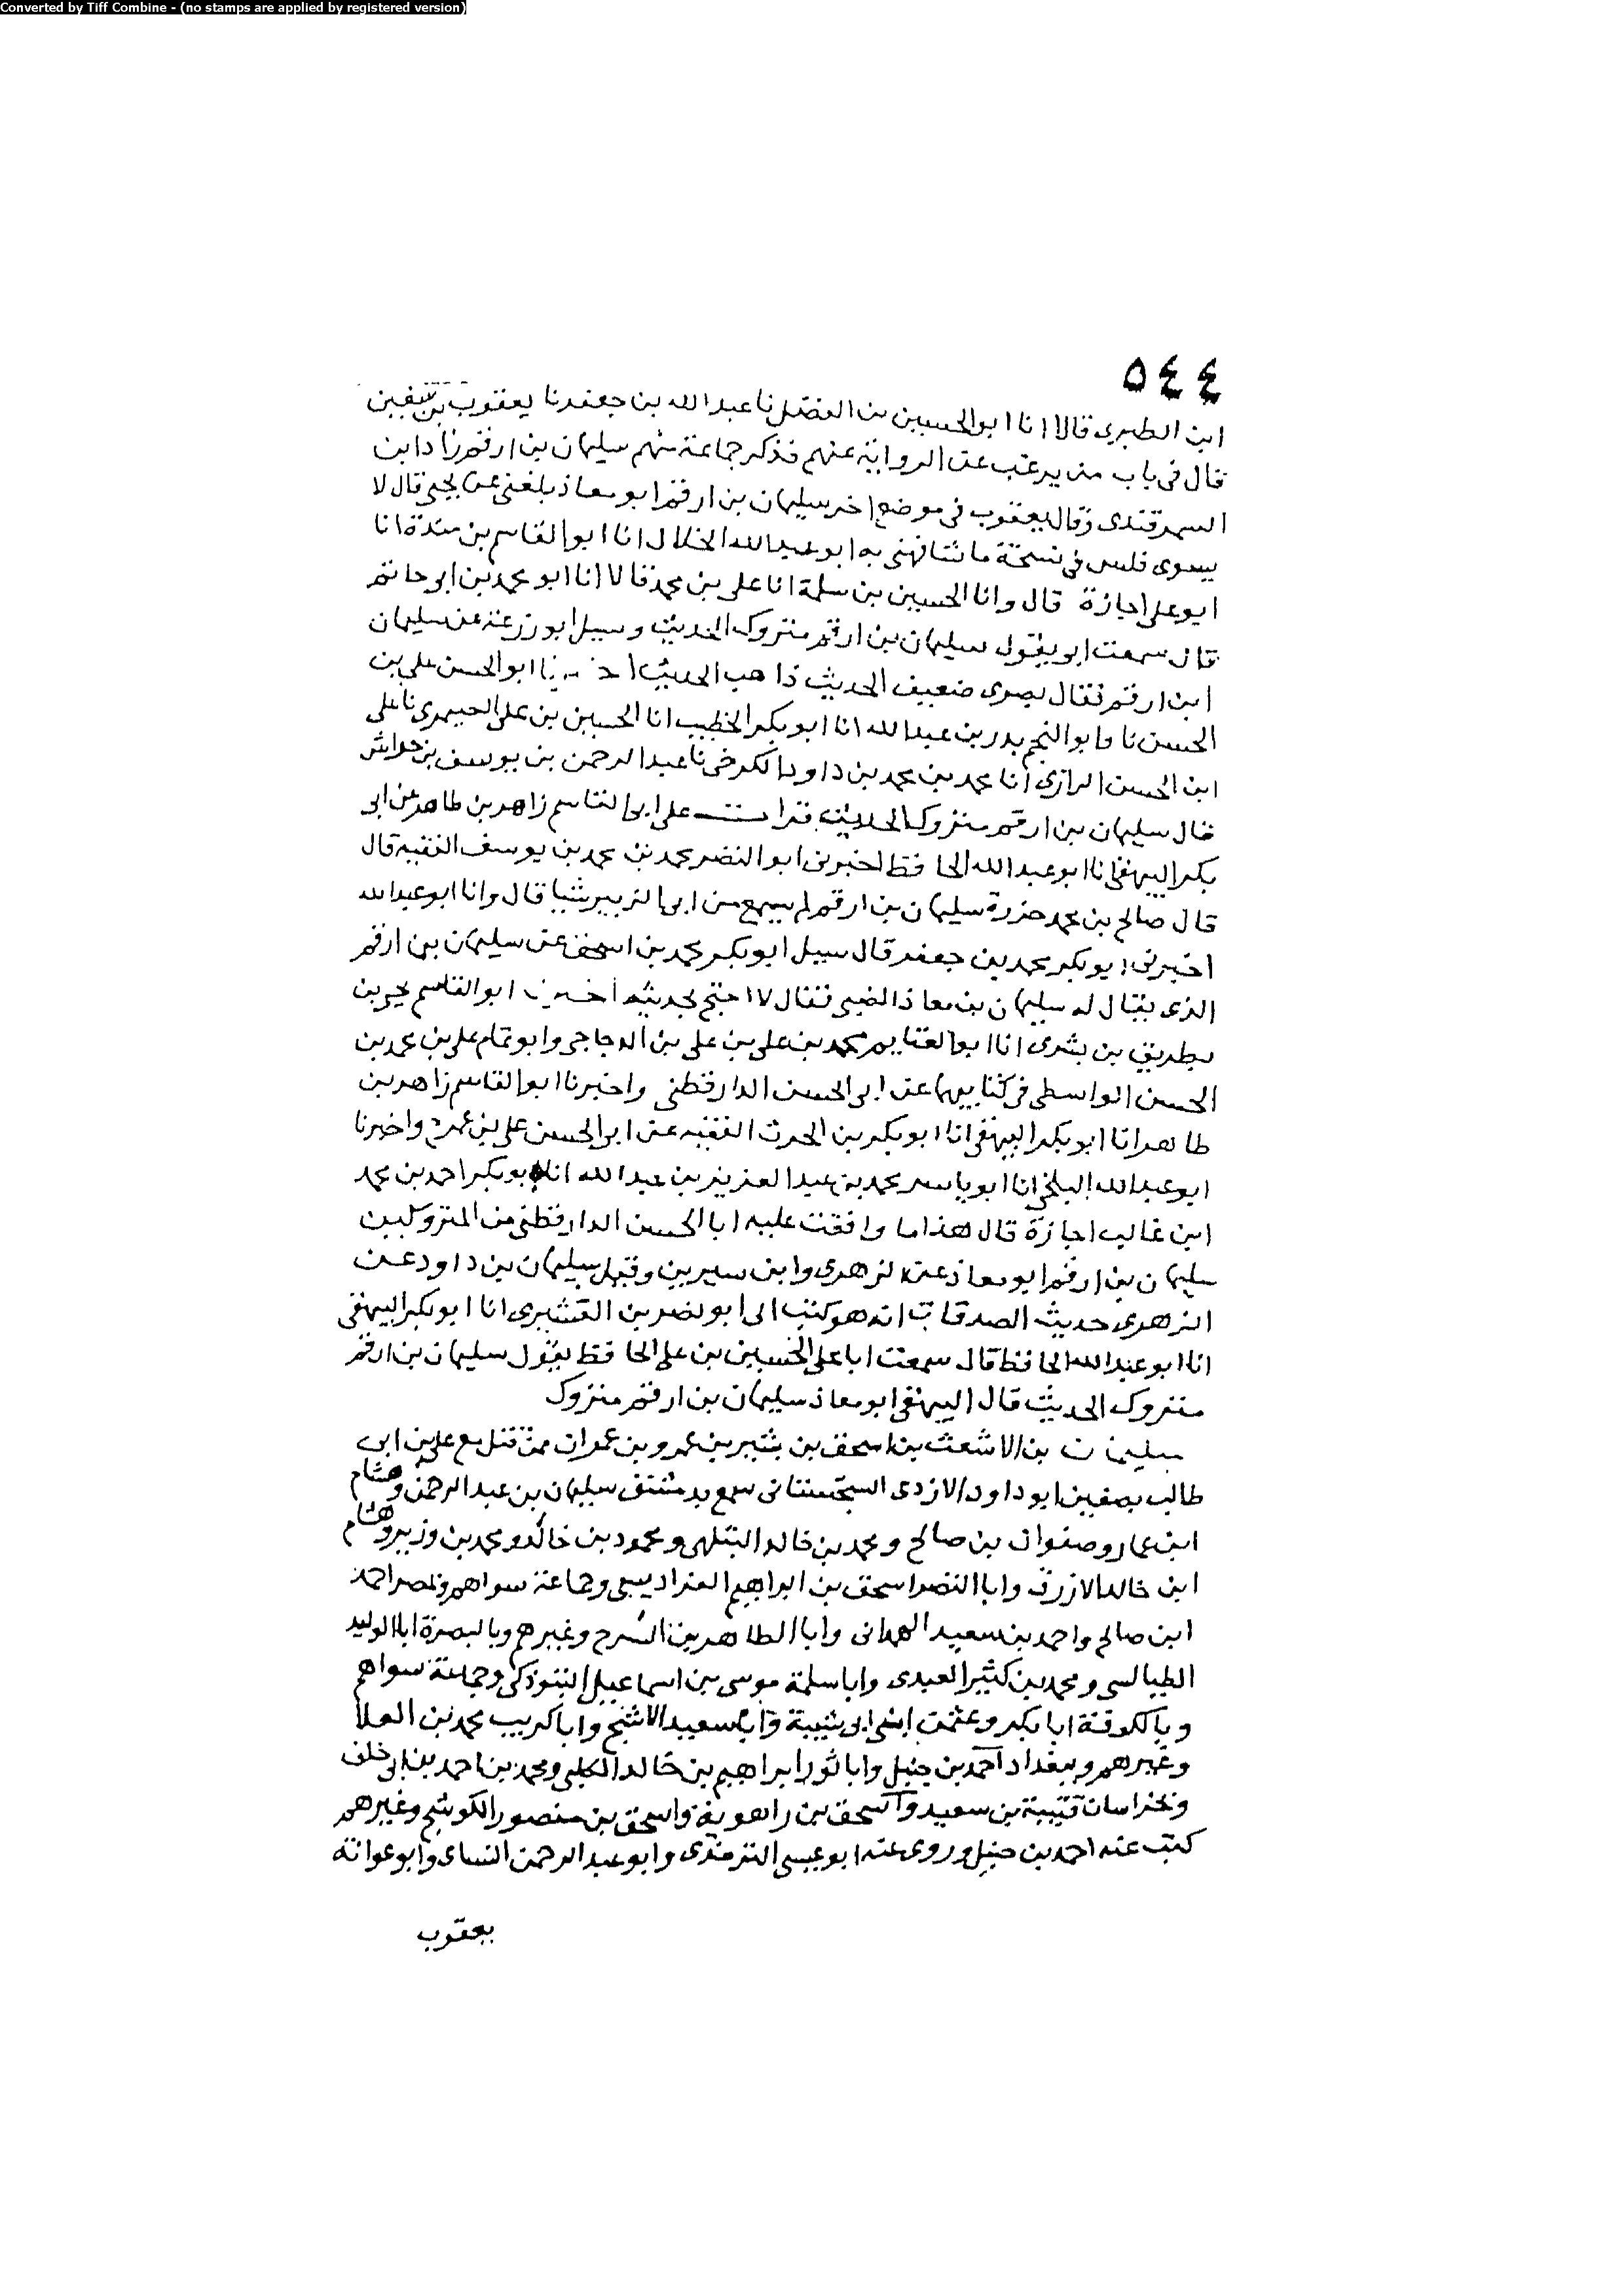 Converted by Tiff Combine - (no stamps are applied by registered version)
٥٤٤
ابن الطبرى قالا انا ابو الحسين بن الفضل نا عبد الله بن جعفر نا يعقوب بن سفين
قال فى باب من يرغب عن الرواية عنهم فذكر جماعة منهم سليمان بن ارقم زاد ابن
السمرقندى وقال يعقوب فى موضع اخر سليمان بن ارقم ابو معاذ بلغنى عن يحيى قال لا
يسوى فلس فى نسخة ما شافهنى به ابو عبد الله الخلال انا ابو القاسم بن مندة انا
ابو على اجازة قال وانا الحسين بن سلمة انا على بن محمد قالا انا ابو محمد بن ابى حاتم
قال سمعت ابى يقول سليمان بن ارقم متروك الحديث وسيل ابو زرعة عن سليمان
ابن ارقم فقال بصرى ضعيف الحديث ذاهب الحديث ابو الحسن على بن
الحسن نا وابو النجم بدر بن عبد الله انا ابو بكر الخطيب انا الحسين بن على الصيمرى نا على
ابن الحسن الرازى انا محمد بن محمد بن داود الكرخى نا عبد الرحمن بن يوسف بن خراش
قال سليمان بن ارقم متروك الحديث قرات على ابى القاسم زاهر بن طاهر عن ابى
بكر البيهقى انا ابو عبد الله الحافظ اخبرنى ابو النضر محمد بن محمد بن يوسف الفقيه قال
قال صالح بن محمد جزرة سليمان بن ارقم لم يسمع من ابى الزبير شيا قال وانا ابو عبد الله
اخبرنى ابو بكر محمد بن جعفر قال سيل ابو بكر محمد بن اسحق عن سليمان بن ارقم
الذى يقال له سليمان بن معاذ الضبى فقال لا احتج بحديثه ابو القاسم يحيى بن
بطريق بن بشرى انا ابو الغنايم محمد بن على بن على بن الدجاجى وابو تمام على بن محمد بن
الحسن الواسطى فى كتابيهما عن ابى الحسن الدارقطنى واخبرنا ابو القاسم زاهر بن
طاهر انا ابو بكر البيهقى انا ابو بكر بن الحرث الفقيه عن ابى الحسن على بن عمر ح واخبرنا
ابو عبد الله البلخى انا ابو ياسر محمد بن عبد العزيز بن عبد الله انا ابو بكر احمد بن محمد
ابن غالب اجازة قال هذا ما وافقت عليه ابا الحسن الدارقطنى من المتروكين
سليمان بن ارقم ابو معاذ عن الزهرى وابن سيرين وقيل سليمان بن داود عن
الزهرى حديث الصدقات انه هو كتب الى ابو نصر بن القشيرى انا ابو بكر البيهقى
انا ابو عبد الله الحافظ قال سمعت ابا على الحسين بن على الحافظ يقول سليمان بن ارقم
متروك الحديث قال البيهقى ابو معاذ سليمان بن ارقم متروك
سليمان بن الاشعث بن اسحق بن بشير بن عمرو بن عمران ممن قتل مع على بن ابى
طالب بصفين ابو داود الازدى السجستانى سمع بدمشق سليمان بن عبد الرحمن وهشام
ابن عمار وصفوان بن صالح ومحمد بن خالد البتلهى ومحمود بن خالد ومحمد بن وزير وهشام
ابن خالد الازرق وابا النضر اسحق بن ابراهيم الفراديسى وجماعة سواهم وبمصر احمد
ابن صالح واحمد بن سعيد الهمدانى وابا الطاهر بن السرح وغيرهم وبالبصرة ابا الوليد
الطيالسى ومحمد بن كثير العبدى وابا سلمة موسى بن اسماعيل التبوذكى وجماعة سواهم
وبالكوفة ابا بكر وعثمن ابنى ابى شيبة وابا سعيد الاشج وابا كريب محمد بن العلا
وغيرهم وببغداد احمد بن حنبل وابا ثور ابراهيم بن خالد الكلبى ومحمد بن احمد بن ابى خلف
وبخراسان قتيبة بن سعيد واسحق بن راهوية واسحق بن منصور الكوسج وغيرهم
كتب عنه احمد بن حنبل وروى عنه ابو عيسى الترمذى وابو عبد الرحمن النساى وابو عوانة
يعقوب